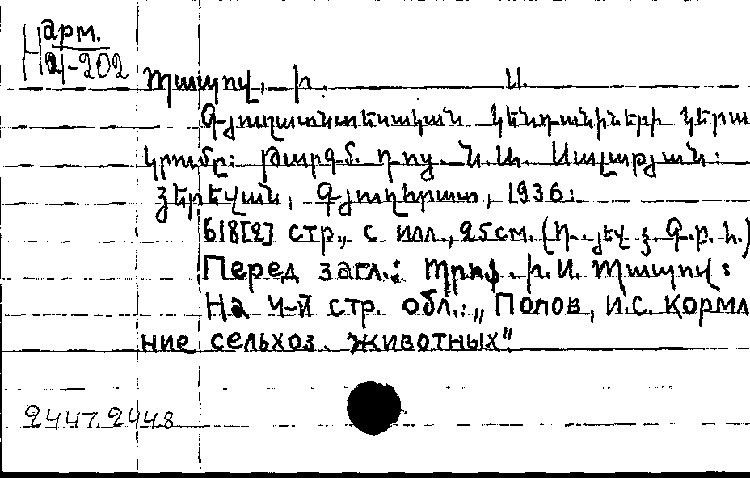 Н арм.
2/-202
Պապով, Ի. Ս.
Գյուղատնտեսական կենդանիների կերա
կրումը: Թարգմ. դոց. Ն. Ա. Սալաթյան:
Յերեվան, Գյուղհրատ, 1936:
618[2] стр., с илл., 25см. (
Перед загл.: Պրոֆ. Ի. Ս. Պապով:
На 4-й стр. обл.: „Попов, И.С. Кормл
ние сельхоз. животных"
2447.2448